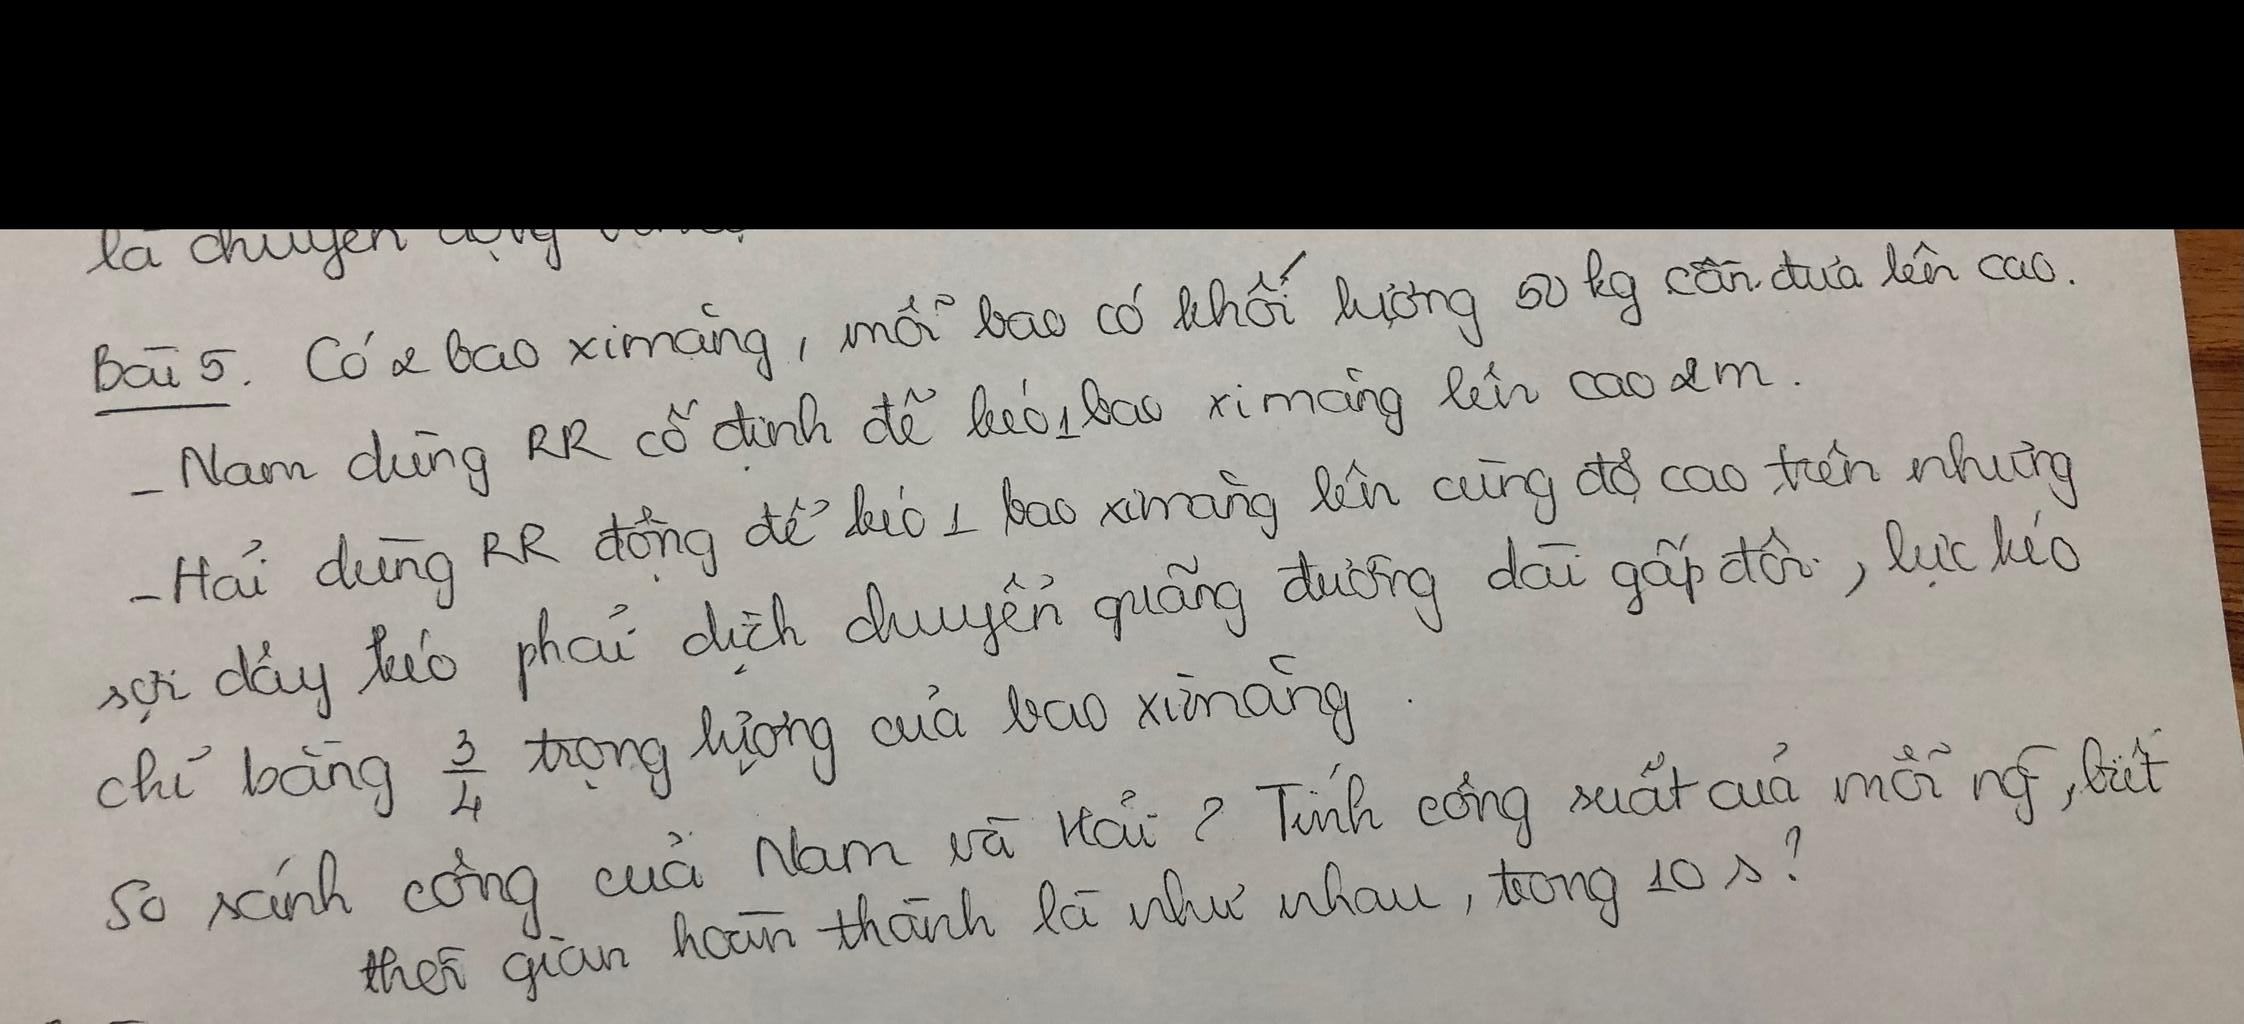 là chuyển động
Bài 5. Có 2 bao ximăng, mỗi bao có khối lượng 50 kg cần đưa lên cao.
- Nam dùng RR cố định để kéo 1 bao ximăng lên cao 2m.
- Hải dùng RR động để kéo 1 bao ximăng lên cùng độ cao trên nhưng
sợi dây kéo phải dịch chuyển quãng đường dài gấp đôi, lực kéo
chỉ bằng 3/4 trọng lượng của bao ximăng.
So sánh công của Nam và Hải? Tính công suất của mỗi ng, biết
thời gian hoàn thành là như nhau, trong 10 s?